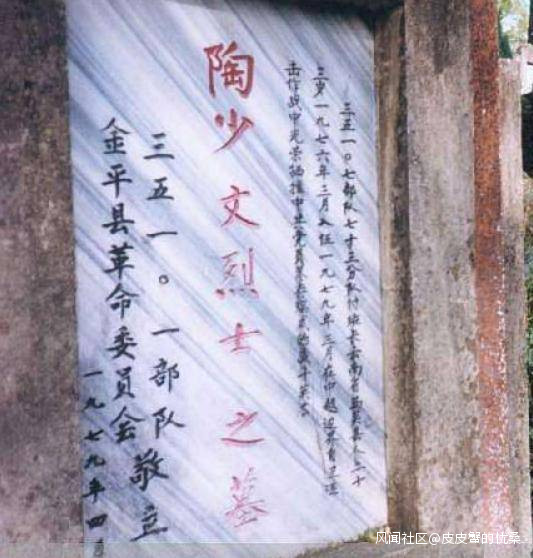 三五一〇七部队七十三分队付班长云南省县人二十
三岁一九七六年三月入伍一九七九年三月在中越边界自卫还
击作战中光荣牺牲中共党员
陶少文烈士之墓
三五一〇一部队
金平县革命委员会
敬立
一九七九年四
风闻社区@皮皮蟹的忧桑